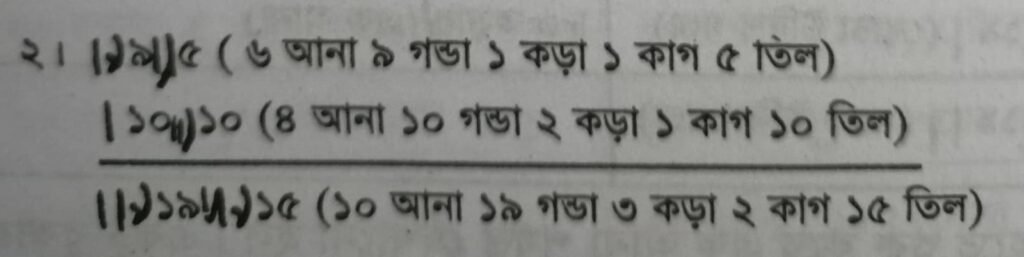 ২। (৬ আনা ৯ গন্ডা ১ কড়া ১ কাগ ৫ তিল)
(৪ আনা ১০ গন্ডা ২ কড়া ১ কাগ ১০ তিল)
(১০ আনা ১৯ গন্ডা ৩ কড়া ২ কাগ ১৫ তিল)